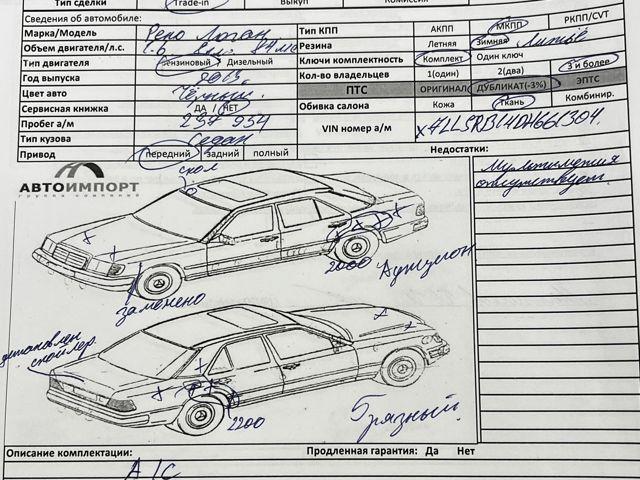 Тип сделки Trade-in Выкуп Комиссия
Сведения об автомобиле:
Марка/Модель Рено Логан
Объем двигателя/л.с. 1.6
Тип двигателя Бензиновый Дизельный
Год выпуска 2013
Цвет авто Чёрный
Сервисная книжка ДА НЕТ
Пробег а/м 237 954
Тип кузова Седан
Привод передний задний полный
Тип КПП АКПП МКПП РКПП/CVT
Резина Летняя Зимняя Литьё
Ключи комплектность Комплект Один ключ
Кол-во владельцев 1(один) 2(два) 3 и более
ПТС ОРИГИНАЛ ДУБЛИКАТ(-3%) ЭПТС
Обивка салона Кожа Ткань Комбинир.
VIN номер а/м
Недостатки:
Мультимедия
отсутствует
скол
АВТОИМПОРТ
группа компаний
заменено
2000
Аукцион
установлен
спойлер
2200
Грязный
Описание комплектации: Продленная гарантия: Да Нет
A/C